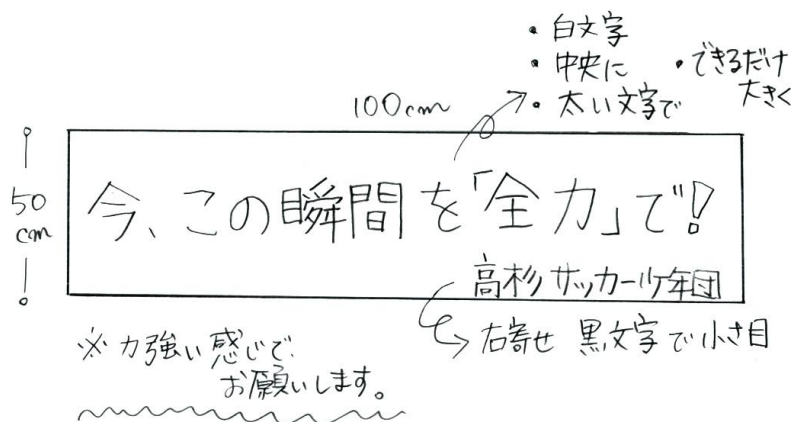 ・白文字
・中央に ・できるだけ大きく
・太い文字で
100cm
50cm
今、この瞬間を「全力」で!
高杉サッカー少年団
→右寄せ 黒文字で小さ目
※力強い感じで
お願いします。